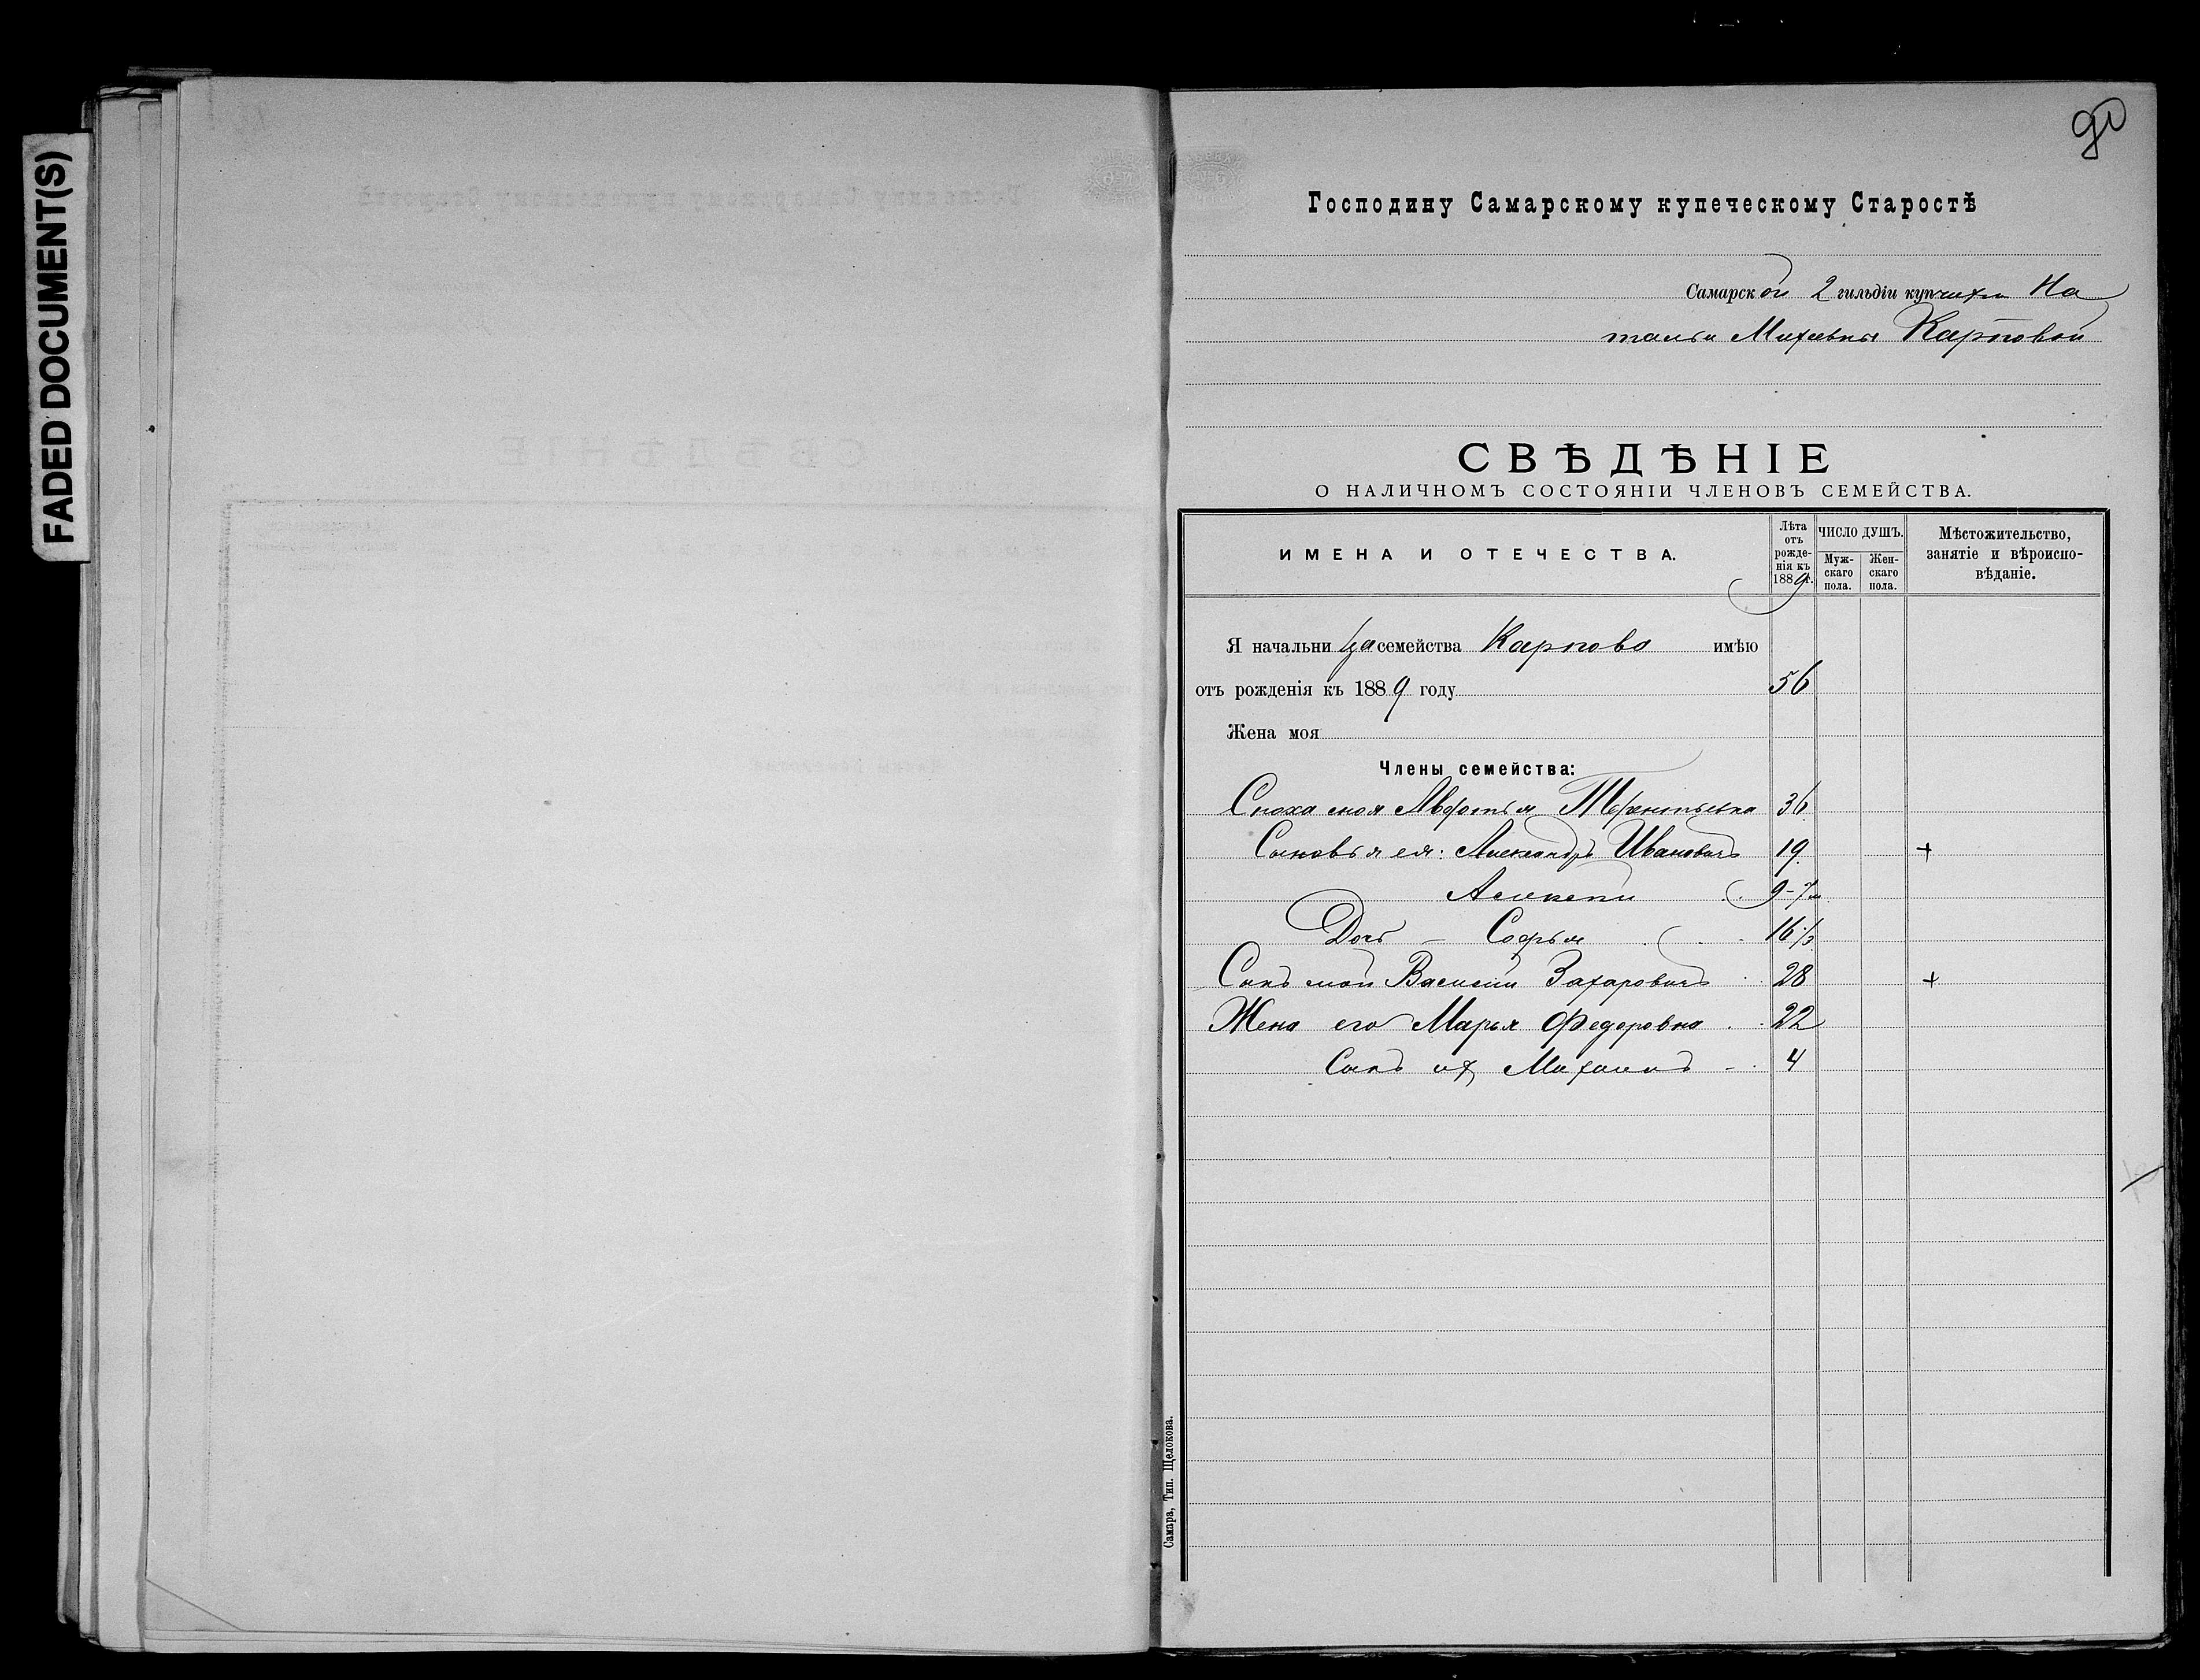 FADED DOCUMENT(S)
90
Господину Самарскому купеческому Старостѣ
Самарской 2 гильдіи купчихи На
тальи Михеевны Карповой
СВѢДѢНІЕ
О НАЛИЧНОМЪ СОСТОЯНІИ ЧЛЕНОВЪ СЕМЕЙСТВА.
ИМЕНА И ОТЕЧЕСТВА.
Лѣта
отъ
рожде-
нія къ
1889 г.
ЧИСЛО ДУШЪ.
Муж-
скаго
пола.
Жен-
скаго
пола.
Мѣстожительство,
занятіе и вѣроиспо-
вѣданіе.
Я начальница семейства Карпова имѣю
отъ рожденія къ 1889 году 56
Жена моя
Члены семейства:
Сноха моя Авдотья Терентьевна 36
Сыновья ея: Александръ Ивановичъ 19 +
Алексей 9-7м
Дочь - Софья 16½
Сынъ мой Василій Захаровичъ 28 +
Жена его Марья Федоровна 22
Сынъ их Михаилъ 4
Самара, Тип. Щелокова.